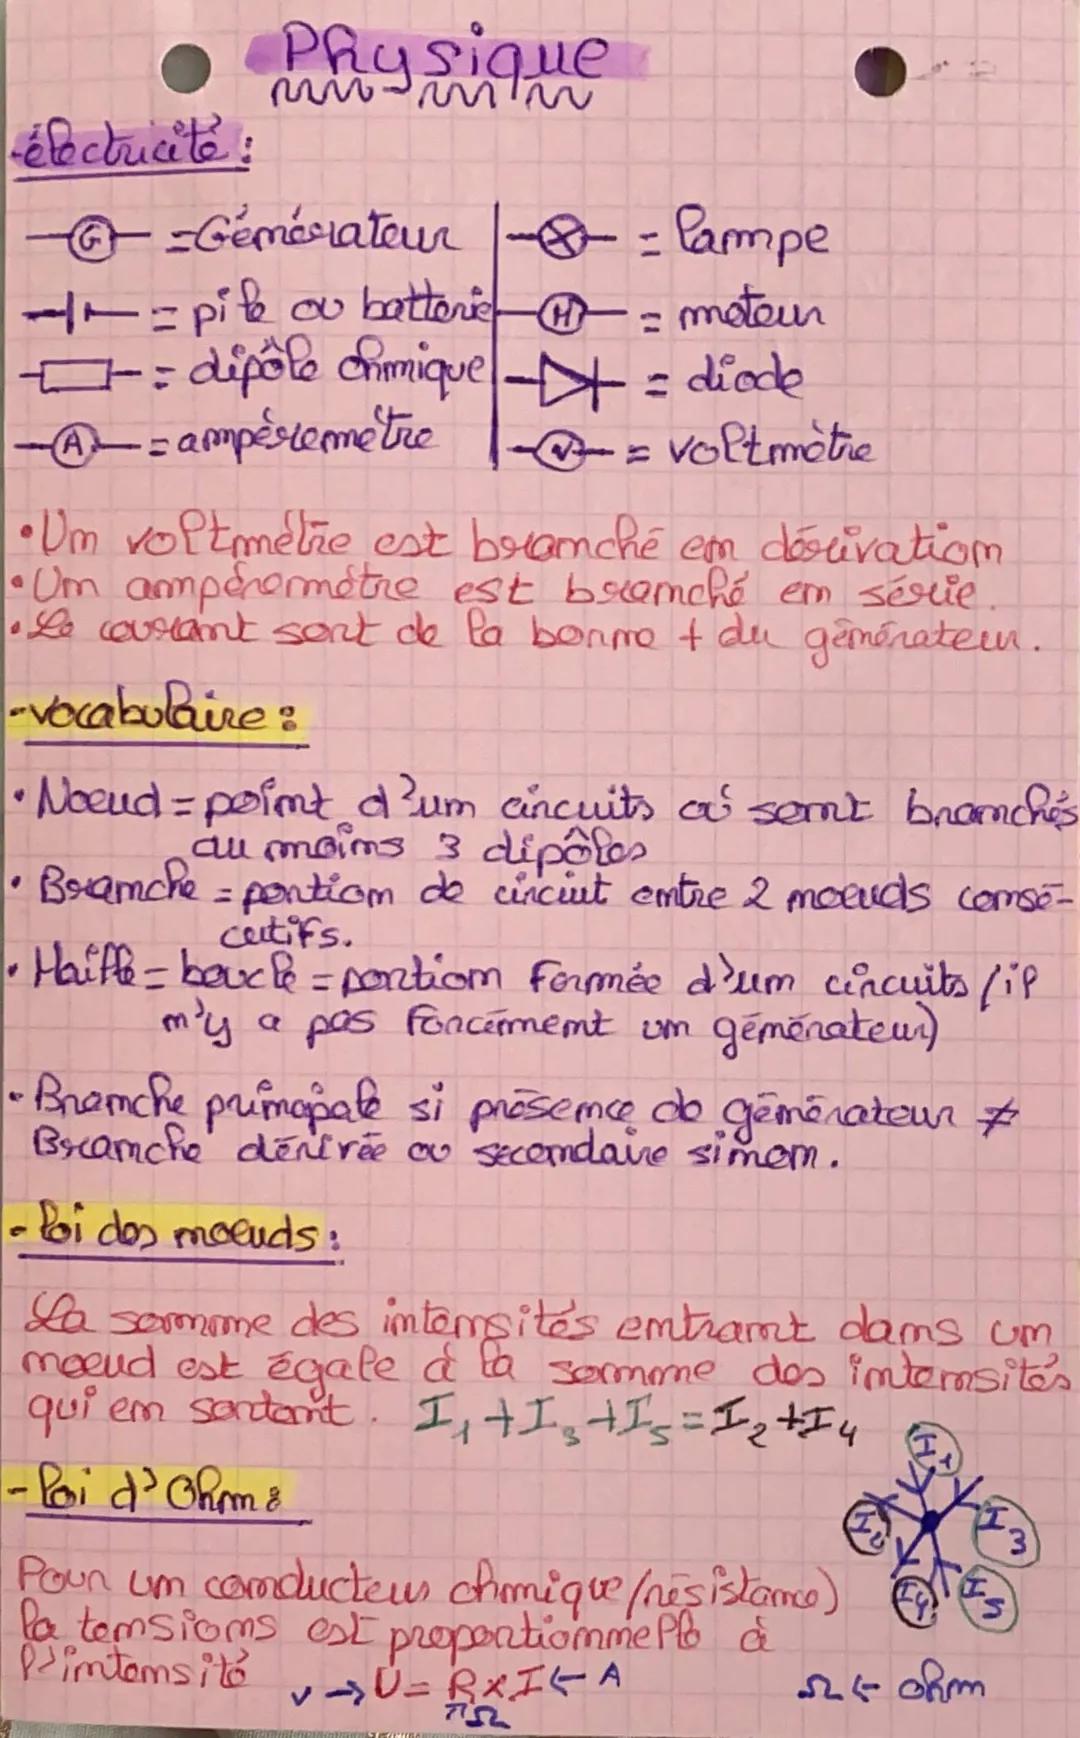 Physique
-électricité :
G = Générateur
= Lampe
= pile ou batterie
M = moteur
= dipôle ohmique
= diode
A = ampèremètre
V = voltmètre
• Un voltmètre est branché en dérivation
• Un ampèremètre est branché en série.
• Le courant sort de la borne + du générateur.
-vocabulaire :
• Noeud = point d'un circuits où sont branchés
au moins 3 dipôles
• Branche = portion de circuit entre 2 noeuds consé-
cutifs.
• Maille = boucle = portion formée d'un circuits (il
n'y a pas forcément un générateur)
• Branche principale si présence de générateur ≠
Branche dérivée ou secondaire sinon.
- loi des noeuds :
La somme des intensités entrant dans un
noeud est égale à la somme des intensités
qui en sortant. I₁ + I₃ + I₅ = I₂ + I₄
I₁
- loi d'Ohm :
I₂
I₃
I₄
I₅
Pour un conducteur ohmique (résistance)
la tensions est proportionnelle à
l'intensité
V → U = R x I ← A
↑Ω
Ω ← ohm